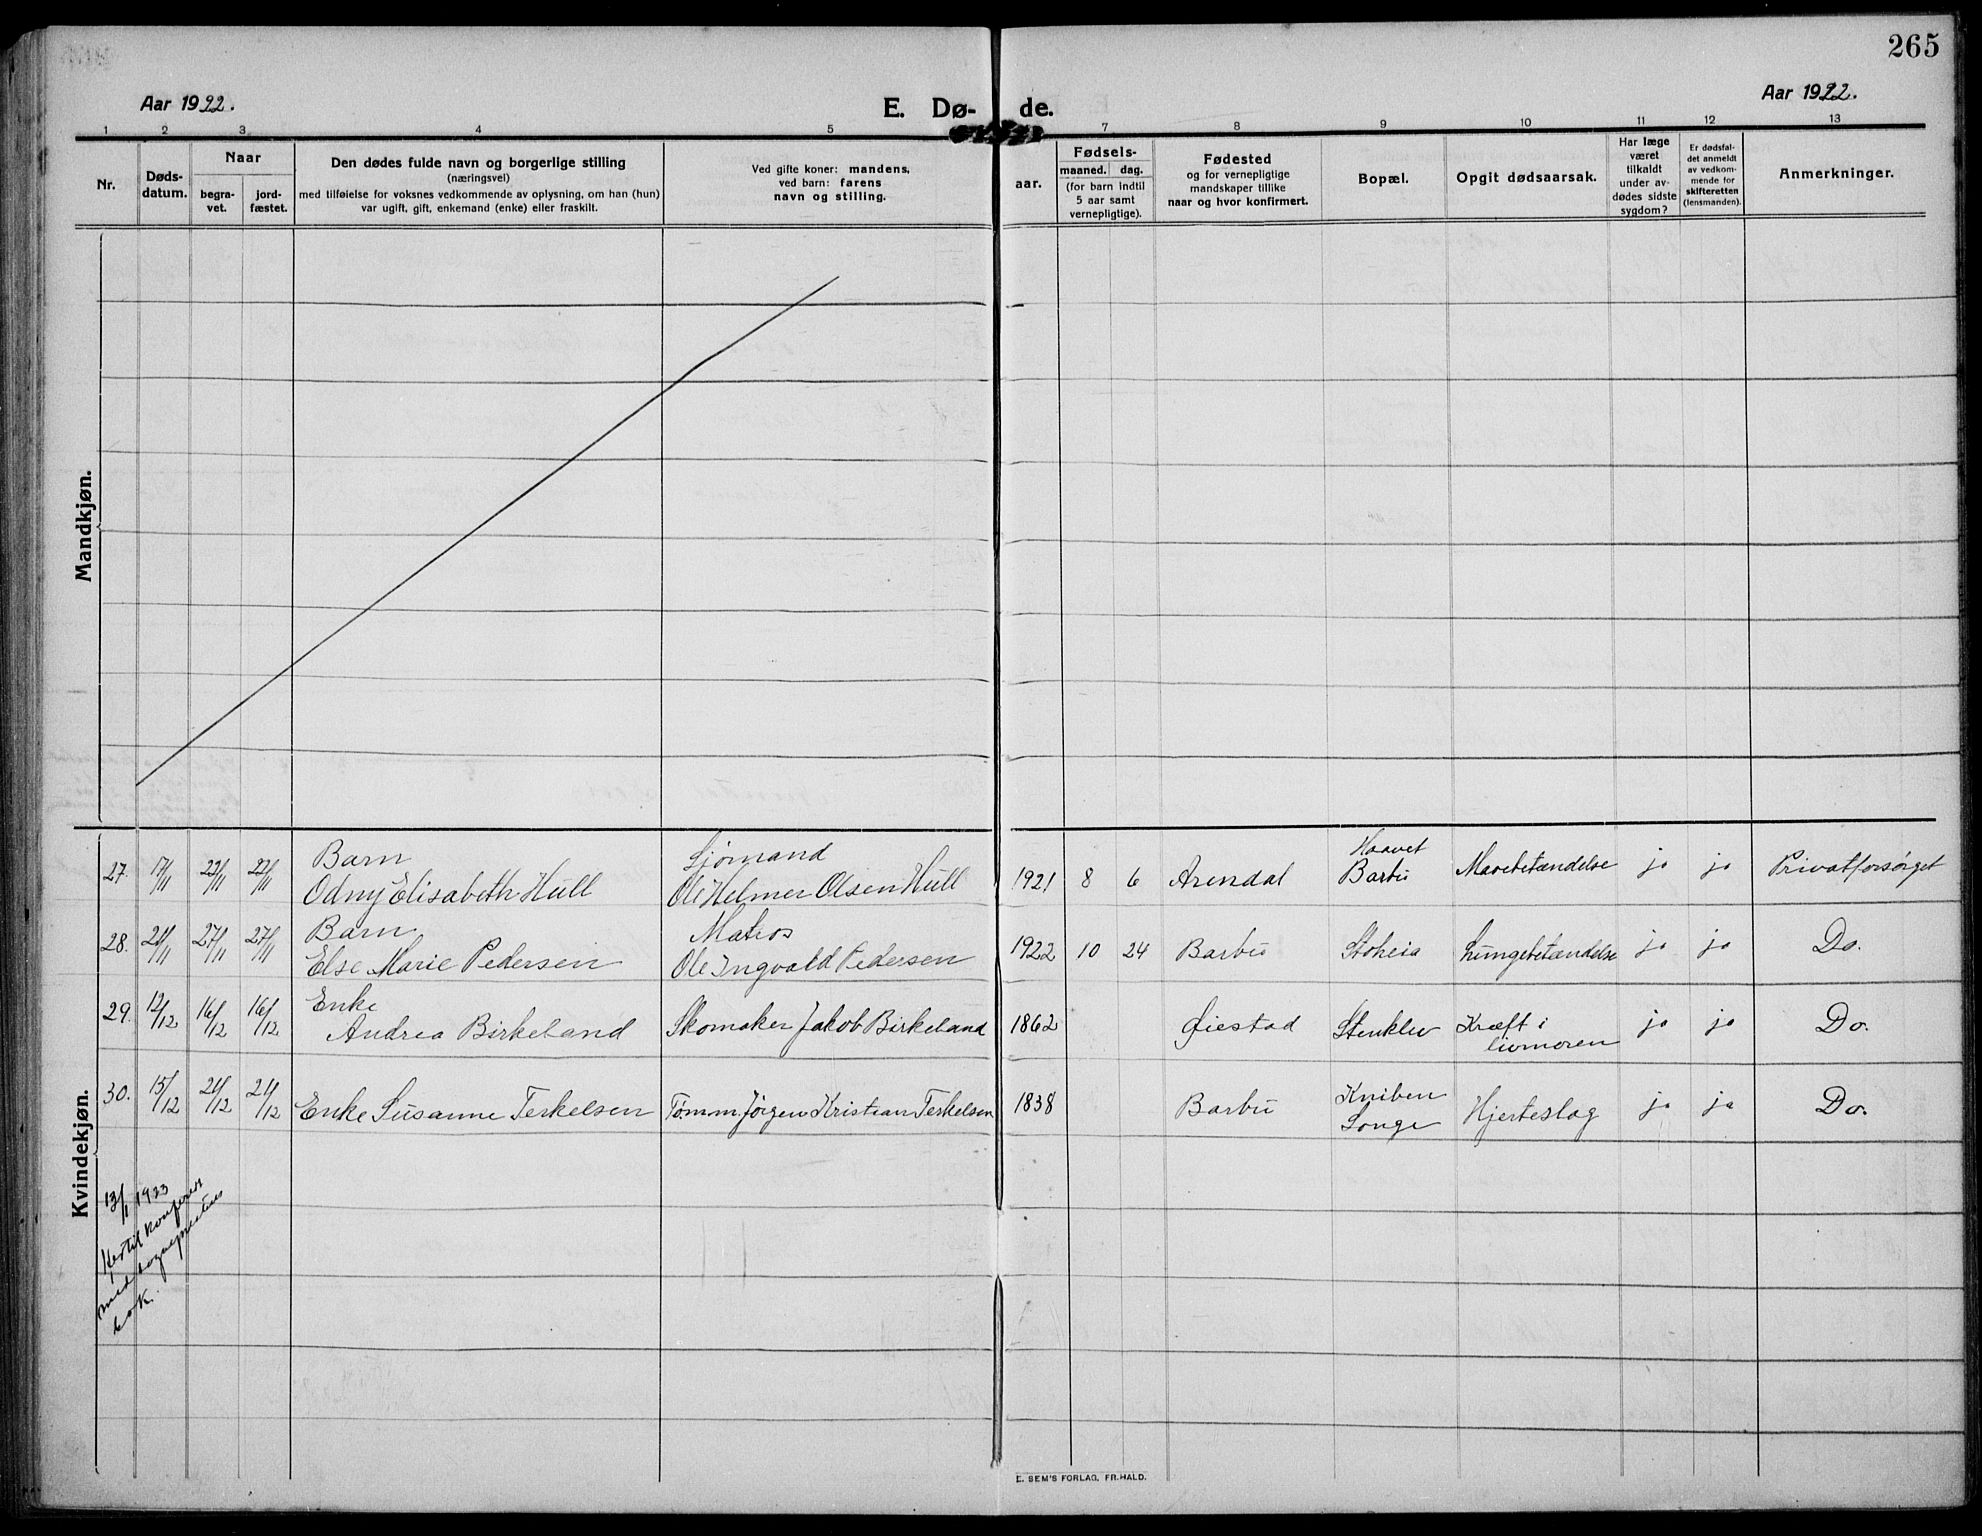 265
Aar 1922.
E. Dø- de.
Aar 1922.
1 2 3 4 5 7 8 9 10 11 12 13
Nr.
Døds-
datum.
Naar
begra-
vet.
jord-
fæstet.
Den dødes fulde navn og borgerlige stilling
(næringsvei)
med tilføielse for voksnes vedkommende av oplysning, om han (hun)
var ugift, gift, enkemand (enke) eller fraskilt.
Ved gifte koner: mandens,
ved barn: farens
navn og stilling.
aar.
Fødsels-
maaned. dag.
(for barn indtil
5 aar samt
vernepligtige).
Fødested
og for vernepligtige
mandskaper tillike
naar og hvor konfirmert.
Bopæl.
Opgit dødsaarsak.
Har læge
været
tilkaldt
under av-
dødes sidste
sygdom?
Er dødsfal-
det anmeldt
av vedkom-
mende for
skifteretten
(lensmanden).
Anmerkninger.
Mandkjøn.
Kvindekjøn.
27. 17/11 22/11 22/11 Barn Sjømand
Odny Elisabeth Hull Ole Helmer Olsen Hull 1921 8 6 Arendal Haavet
Barbu Mavebetændelse ja ja Privatforsørget
28. 21/11 27/11 27/11 Barn Matros
Else Marie Pedersen Ole Ingvald Pedersen 1922 10 24 Barbu Stoheia Lungebetændelse ja ja Do.
29. 12/12 16/12 16/12 Enke
Andrea Birkeland Skomaker Jakob Birkeland 1862 Øiestad Stenklev Kræft i
livmoren ja ja Do.
30. 15/12 21/12 21/12 Enke Susanne Terkelsen Tømm. Jørgen Kristian Terkelsen 1838 Barbu Kniben
Longe Hjerteslag ja ja Do.
13/1 1923
Hertil konferert
med sogneprestens
bok.
E. SEM'S FORLAG, FR.HALD.